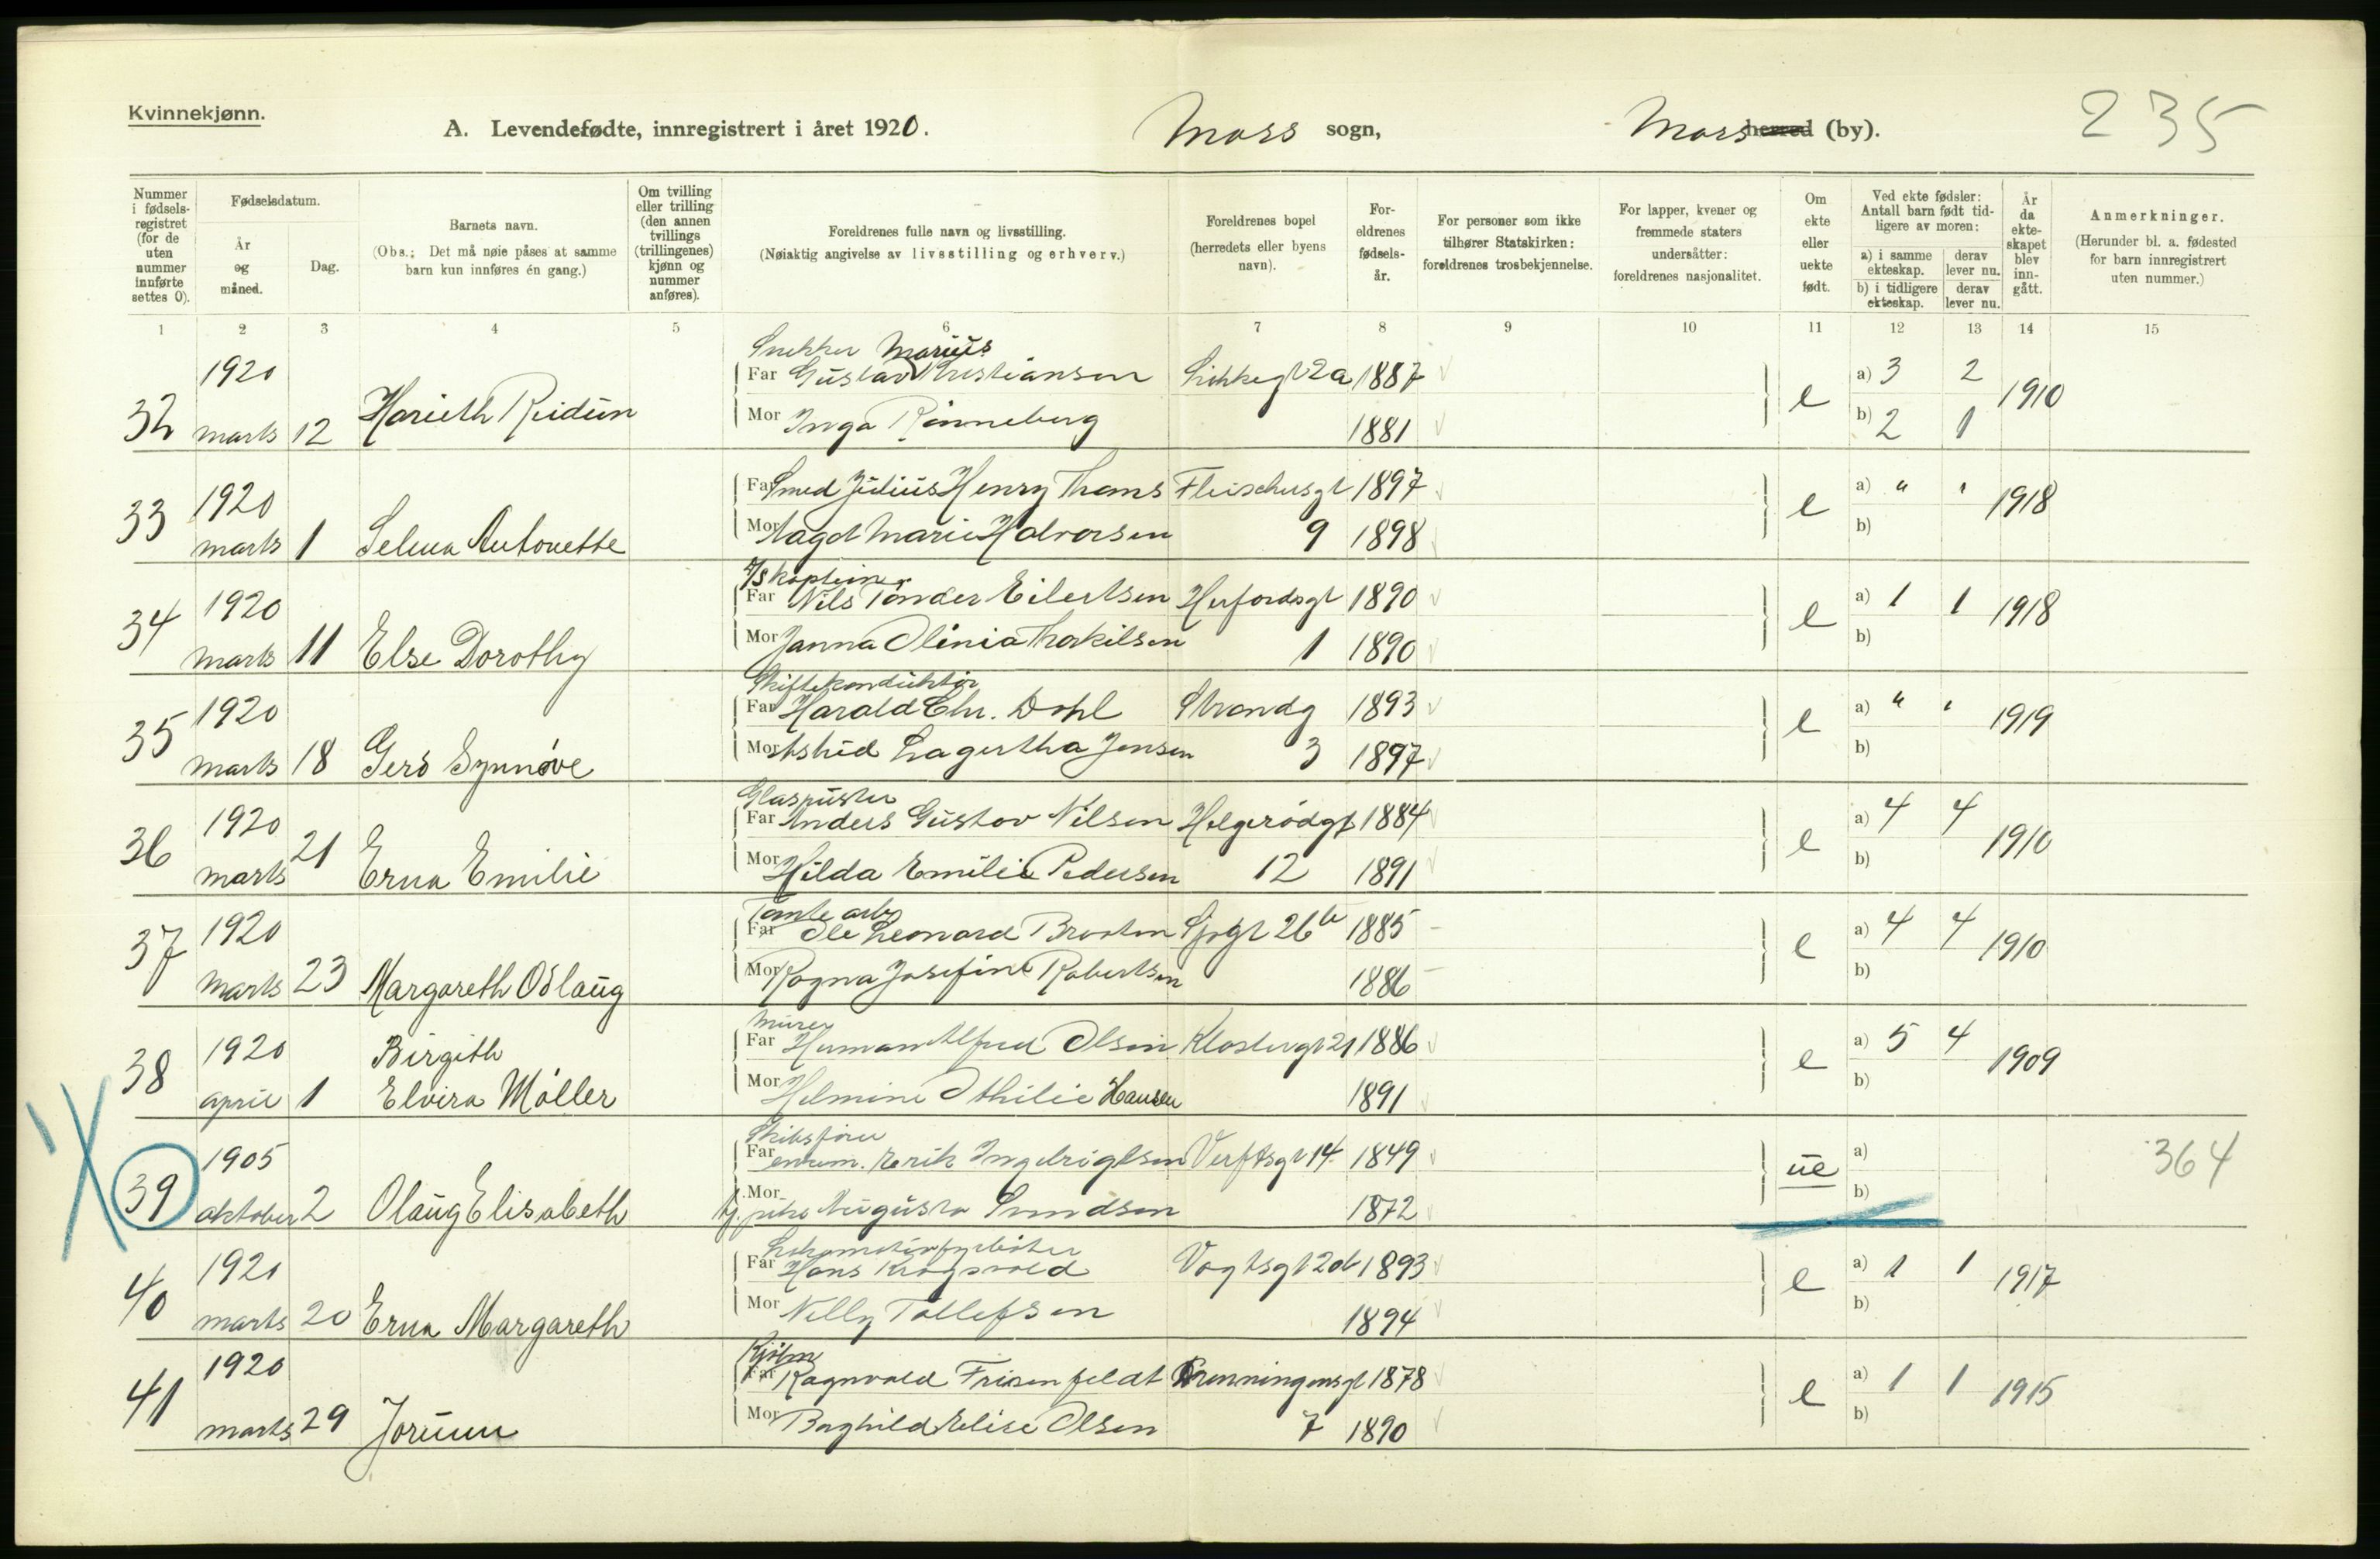 Kvinnekjønn.
A. Levendefødte, innregistrert i året 1920.
Moss sogn,
Moss herred (by).
235
Nummer i fødselsregistret (for de uten nummer innførte settes 0).
Fødselsdatum.
År og måned.
Dag.
Barnets navn.
(Obs.: Det må nøie påses at samme barn kun innføres én gang.)
Om tvilling eller trilling (den annen tvillings (trillingenes) kjønn og nummer anføres).
Foreldrenes fulle navn og livsstilling.
(Nøiaktig angivelse av livsstilling og erhverv.)
Foreldrenes bopel (herredets eller byens navn).
Foreldrenes fødselsår.
For personer som ikke tilhører Statskirken: foreldrenes trosbekjennelse.
For lapper, kvener og fremmede staters undersåtter: foreldrenes nasjonalitet.
Om ekte eller uekte født.
Ved ekte fødsler: Antall barn født tidligere av moren:
a) i samme ekteskap. derav lever nu.
b) i tidligere ekteskap. derav lever nu.
År da ekteskapet blev inngått.
Anmerkninger.
(Herunder bl. a. fødested for barn innregistrert uten nummer.)
1 2 3 4 5 6 7 8 9 10 11 12 13 14 15
Snekker Marius
1920 Far Gustav Kristiansen 2a 1887 e a) 3 2 1910
32 marts 12 Harieth Reidun Mor Inga Rønneberg 1881 b) 2 1
1920 Far Smed Julius Henry Thoms Fleischersgt 1897 e a) " " 1918
33 marts 1 Selma Antonette Mor Magd Marie Halvorsen 9 1898 b)
D/S kaptein
1920 Far Nils Tønder Eilertsen Herfordsgt 1890 e a) 1 1 1918
34 marts 11 Else Dorothy Mor Janna Olinia Thorkilsen 1 1890 b)
Skiftekonduktør
1920 Far Harald Chr. Dahl Strandg 1893 e a) " " 1919
35 marts 18 Gerd Synnøve Mor Astrid Lagertha Jensen 3 1897 b)
Glaspuster
1920 Far Anders Gustav Nilsen Helgerødgt 1884 e a) 4 4 1910
36 marts 21 Erna Emilie Mor Hilda Emilie Pedersen 12 1891 b)
Tomtearb
1920 Far Ole Leonard Braaten Sjøgt 26b 1885 e a) 4 4 1910
37 marts 23 Margareth Odlaug Mor Ragna Josefine Robertsen 1886 b)
Murer
1920 Birgith Far Herman Alfred Olsen Klostergt 21 1886 e a) 5 4 1909
38 april 1 Elvira Møller Mor Helmine Othilie Hansen 1891 b)
Skibsfører
1905 Far enkem. Erik Ingebrigtsen Verftsgt 14 1849 ue a) 364
39 oktober 2 Olaug Elisabeth Mor Augusta 1872 b)
Lokomotivfyrbøter
1920 Far Hans Krogsvold Vogtsgt 2d 1893 e a) 1 1 1917
40 marts 20 Erna Margareth Mor Nelly Tollefsen 1894 b)
Kjøbm
1920 Far Ragnvald Frisenfeldt Dronningensgt 1878 e a) 1 1 1915
41 marts 29 Jorunn Mor Borghild Elise Olsen 7 1890 b)